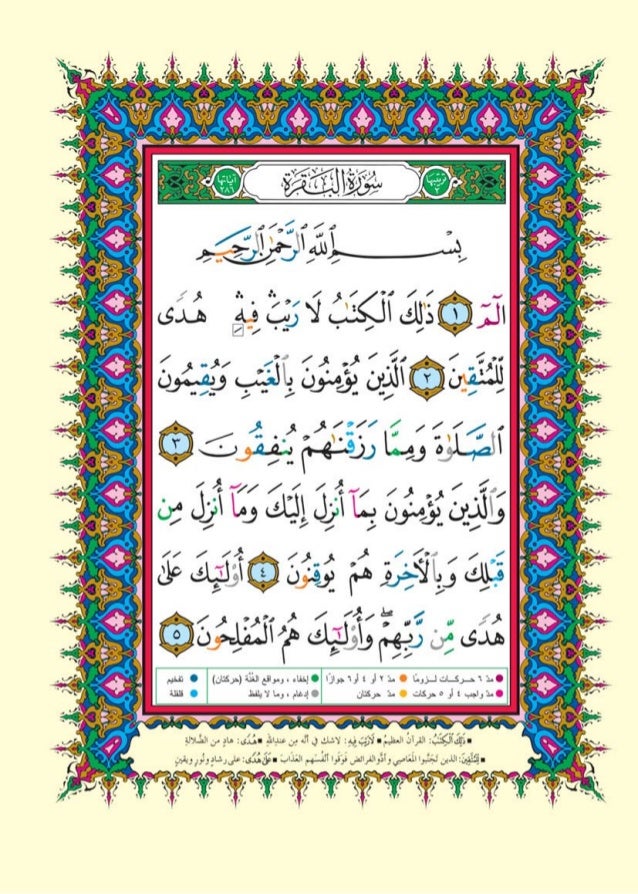 ترتيبها ٢
سُورَةُ الْبَقَرَةِ
آياتها ٢٨٦
بِسْمِ ٱللَّهِ ٱلرَّحْمَٰنِ ٱلرَّحِيمِ
الٓمٓ ١ ذَٰلِكَ ٱلْكِتَٰبُ لَا رَيْبَ ۛ فِيهِ ۛ هُدًى
لِّلْمُتَّقِينَ ٢ ٱلَّذِينَ يُؤْمِنُونَ بِٱلْغَيْبِ وَيُقِيمُونَ
ٱلصَّلَوٰةَ وَمِمَّا رَزَقْنَٰهُمْ يُنفِقُونَ ٣
وَٱلَّذِينَ يُؤْمِنُونَ بِمَآ أُنزِلَ إِلَيْكَ وَمَآ أُنزِلَ مِن
قَبْلِكَ وَبِٱلْأَخِرَةِ هُمْ يُوقِنُونَ ٤ أُو۟لَٰٓئِكَ عَلَىٰ
هُدًى مِّن رَّبِّهِمْ ۖ وَأُو۟لَٰٓئِكَ هُمُ ٱلْمُفْلِحُونَ ٥
● مدّ ٦ حركات لزوماً ● مدّ ٢ أو ٤ أو ٦ جوازاً ● إخفاء، ومواقع الغُنَّة (حركتان) ● تفخيم
● مدّ واجب ٤ أو ٥ حركات ● مدّ حركتان ● إدغام، وما لا يلفظ ● قلقلة
■ ذَٰلِكَ ٱلْكِتَٰبُ: القرآنُ العظيمُ ■ لَا رَيْبَ فِيهِ: لاشك في أنَّه مِن عندِاللهِ ■ هُدًى: هادٍ من الضَّلالةِ
■ لِّلْمُتَّقِينَ: الذين تجَنَّبوا المَعاصي وأدَّوالفرائضَ فَوَقَوا أنْفُسَهم العَذَابَ ■ عَلَىٰ هُدًى: على رشادٍ ونُورٍ ويقينٍ